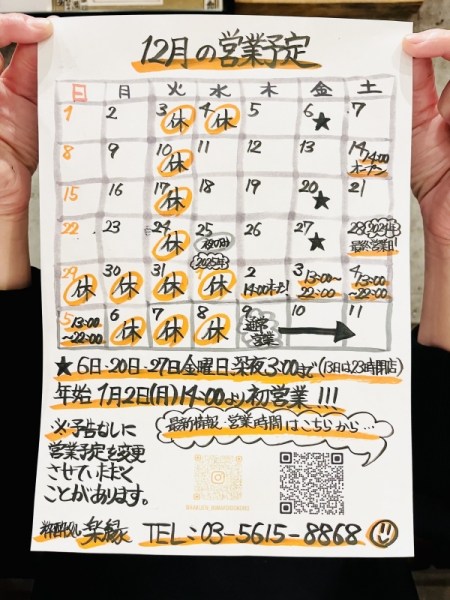 12月の営業予定
日 月 火 水 木 金 土
1 2 3休 4休 5 6★ 7
8 9 10休 11 12 13 14 14:00オープン
15 16 17休 18 19 20★ 21
22 23 24休 25 26 27★ 28 2024年最終営業日!
29休 30休 31休 2025年 1休 2 14:00オープン! 3 13:00~22:00 4 13:00~22:00
5 13:00~22:00 6休 7休 8休 9 通常営業 10 11
★6日・20日・27日金曜日深夜3:00まで(13日は23時閉店)
年始 1月2日(月)14:00より初営業!!!
最新情報・営業時間はこちらから…
※予告なしに
営業予定を変更
させていただく
ことがあります。
楽縁 TEL:03-5615-8868